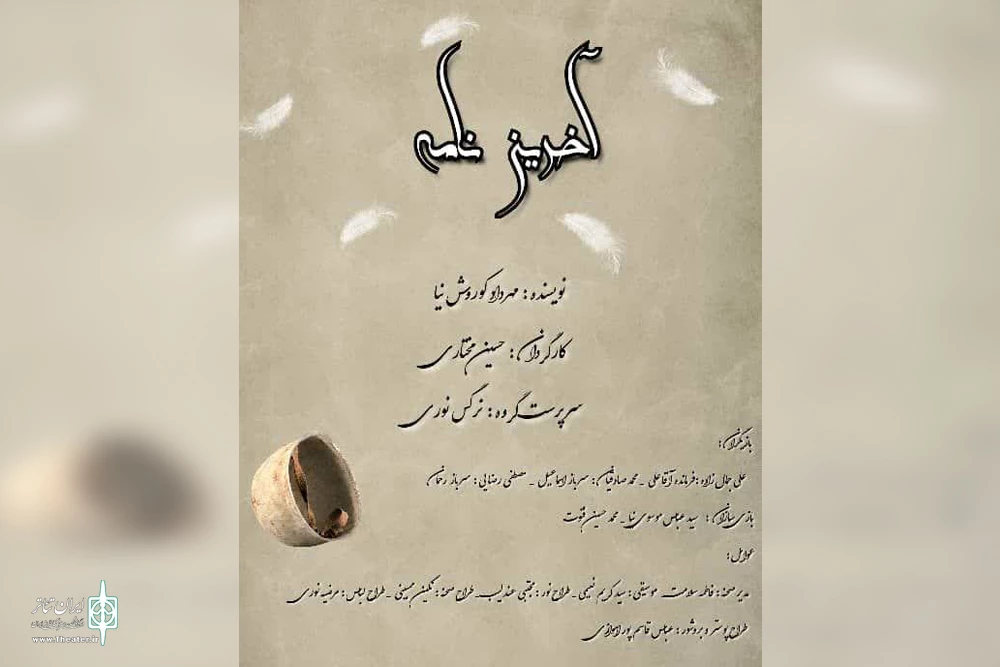 آخرین نامه
نویسنده: مهرداد کوروش نیا
کارگردان: حسین مختاری
سرپرست گروه: نرگس نوری
بازیگران:
علی جمال زاده: فرمانده آقا علی _ محمد صادقیان: سرباز اسماعیل _ مصطفی رضایی: سرباز رحمان
بازی سازان: سید عباس موسوی نیا _ محمد حسین فتوت
عوامل:
مدیر صحنه: فاطمه سلامت موسیقی: سید کریم نعیمی _ طراح نور: مجتبی عندلیب _ طراح صحنه: نگین مبینی _ طراح لباس: مرضیه نوری
طراح پوستر و بروشور: عباس قاسم پور اهوازی
ایران تئاتر
www.theater.ir